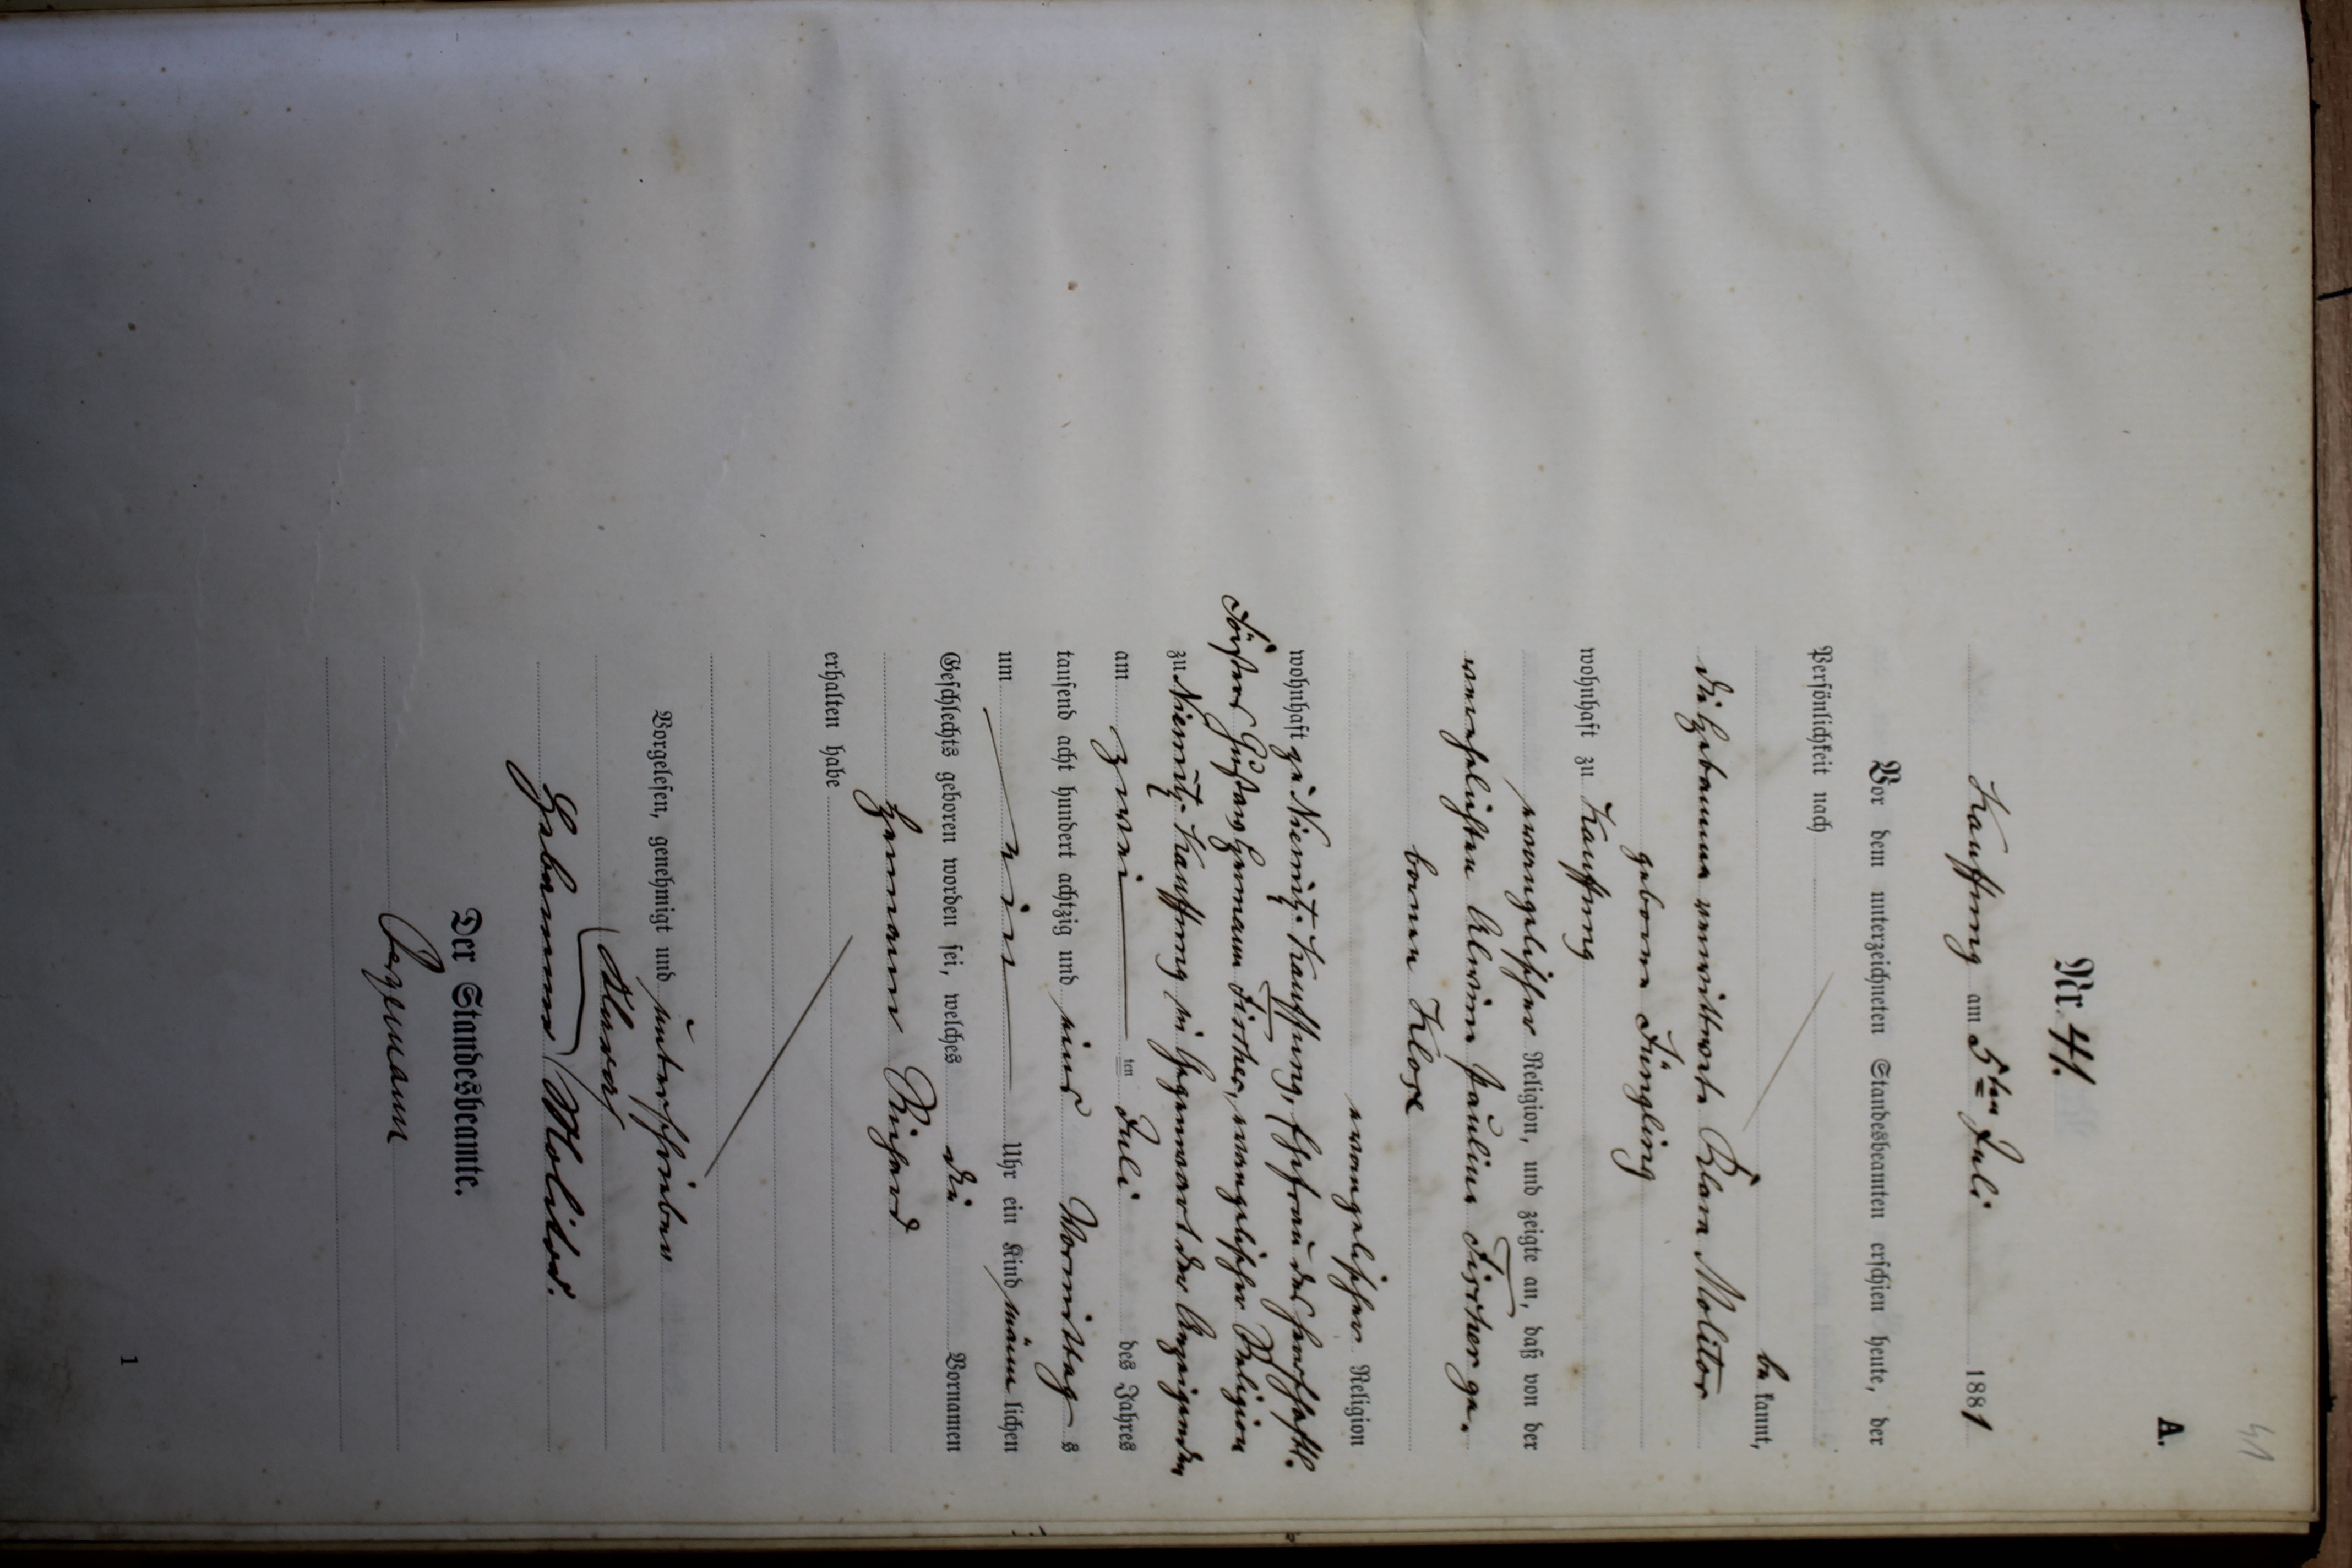 41
A.
Nr. 41.
Kauffung am 5ten Juli 1881
Vor dem unterzeichneten Standesbeamten erschien heute, der
Persönlichkeit nach
bekannt,
die Hebamme verwittwete Klara Molitor
geborene Jüngling
wohnhaft zu Kauffung
evangelischer Religion, und zeigte an, daß von der
verehelichten Alwine Pauline Fischer ge-
borene Klose
evangelischer Religion
wohnhaft zu Niemitz-Kauffung, Ehefrau des herrschaftl.
Försters Gustav Hermann Fischer, evangelischer Religion
zu Niemitz-Kauffung in Gegenwart der Anzeigenden
am zwei ten Juli des Jahres
tausend acht hundert achtzig und eins Vormittag s
um vier Uhr ein Kind männlichen
Geschlechts geboren worden sei, welches die Vornamen
Hermann Richard
erhalten habe
Vorgelesen, genehmigt und unterschrieben
Klara
Hebamme Molitor.
Der Standesbeamte.
1